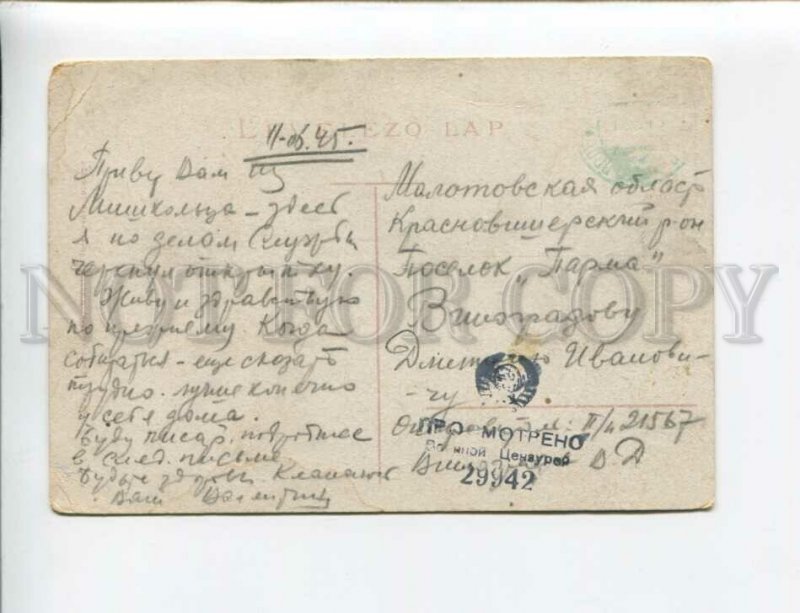 LEVELEZŐ LAP
Привет Вам из
Мишкольца – здесь
я по делам службы
черкнул открытку.
Живу и здравствую
по прежнему. Когда
собираться – еще сказать
трудно. лучше конечно
у себя дома.
Буду писать подробнее
в след. письме
Будьте здоровы Кланяюсь
Ваш
Молотовская област
Красновишерский р-он
Поселок „Парма"
Виноградову
Дмитрию Иванови-
чу
П/п 21567
В Д
ПРОСМОТРЕНО
Военной Цензурой
29942
NOT FOR COPY